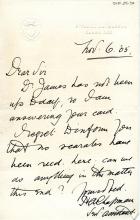 Nov. 6. 05.
Dear Sir
Dr James has not been
up today, so I am
answering your card.
I regret to inform you
that no scarabs have
been recd here; can we
do anything in the matter
this end?
Yours truly